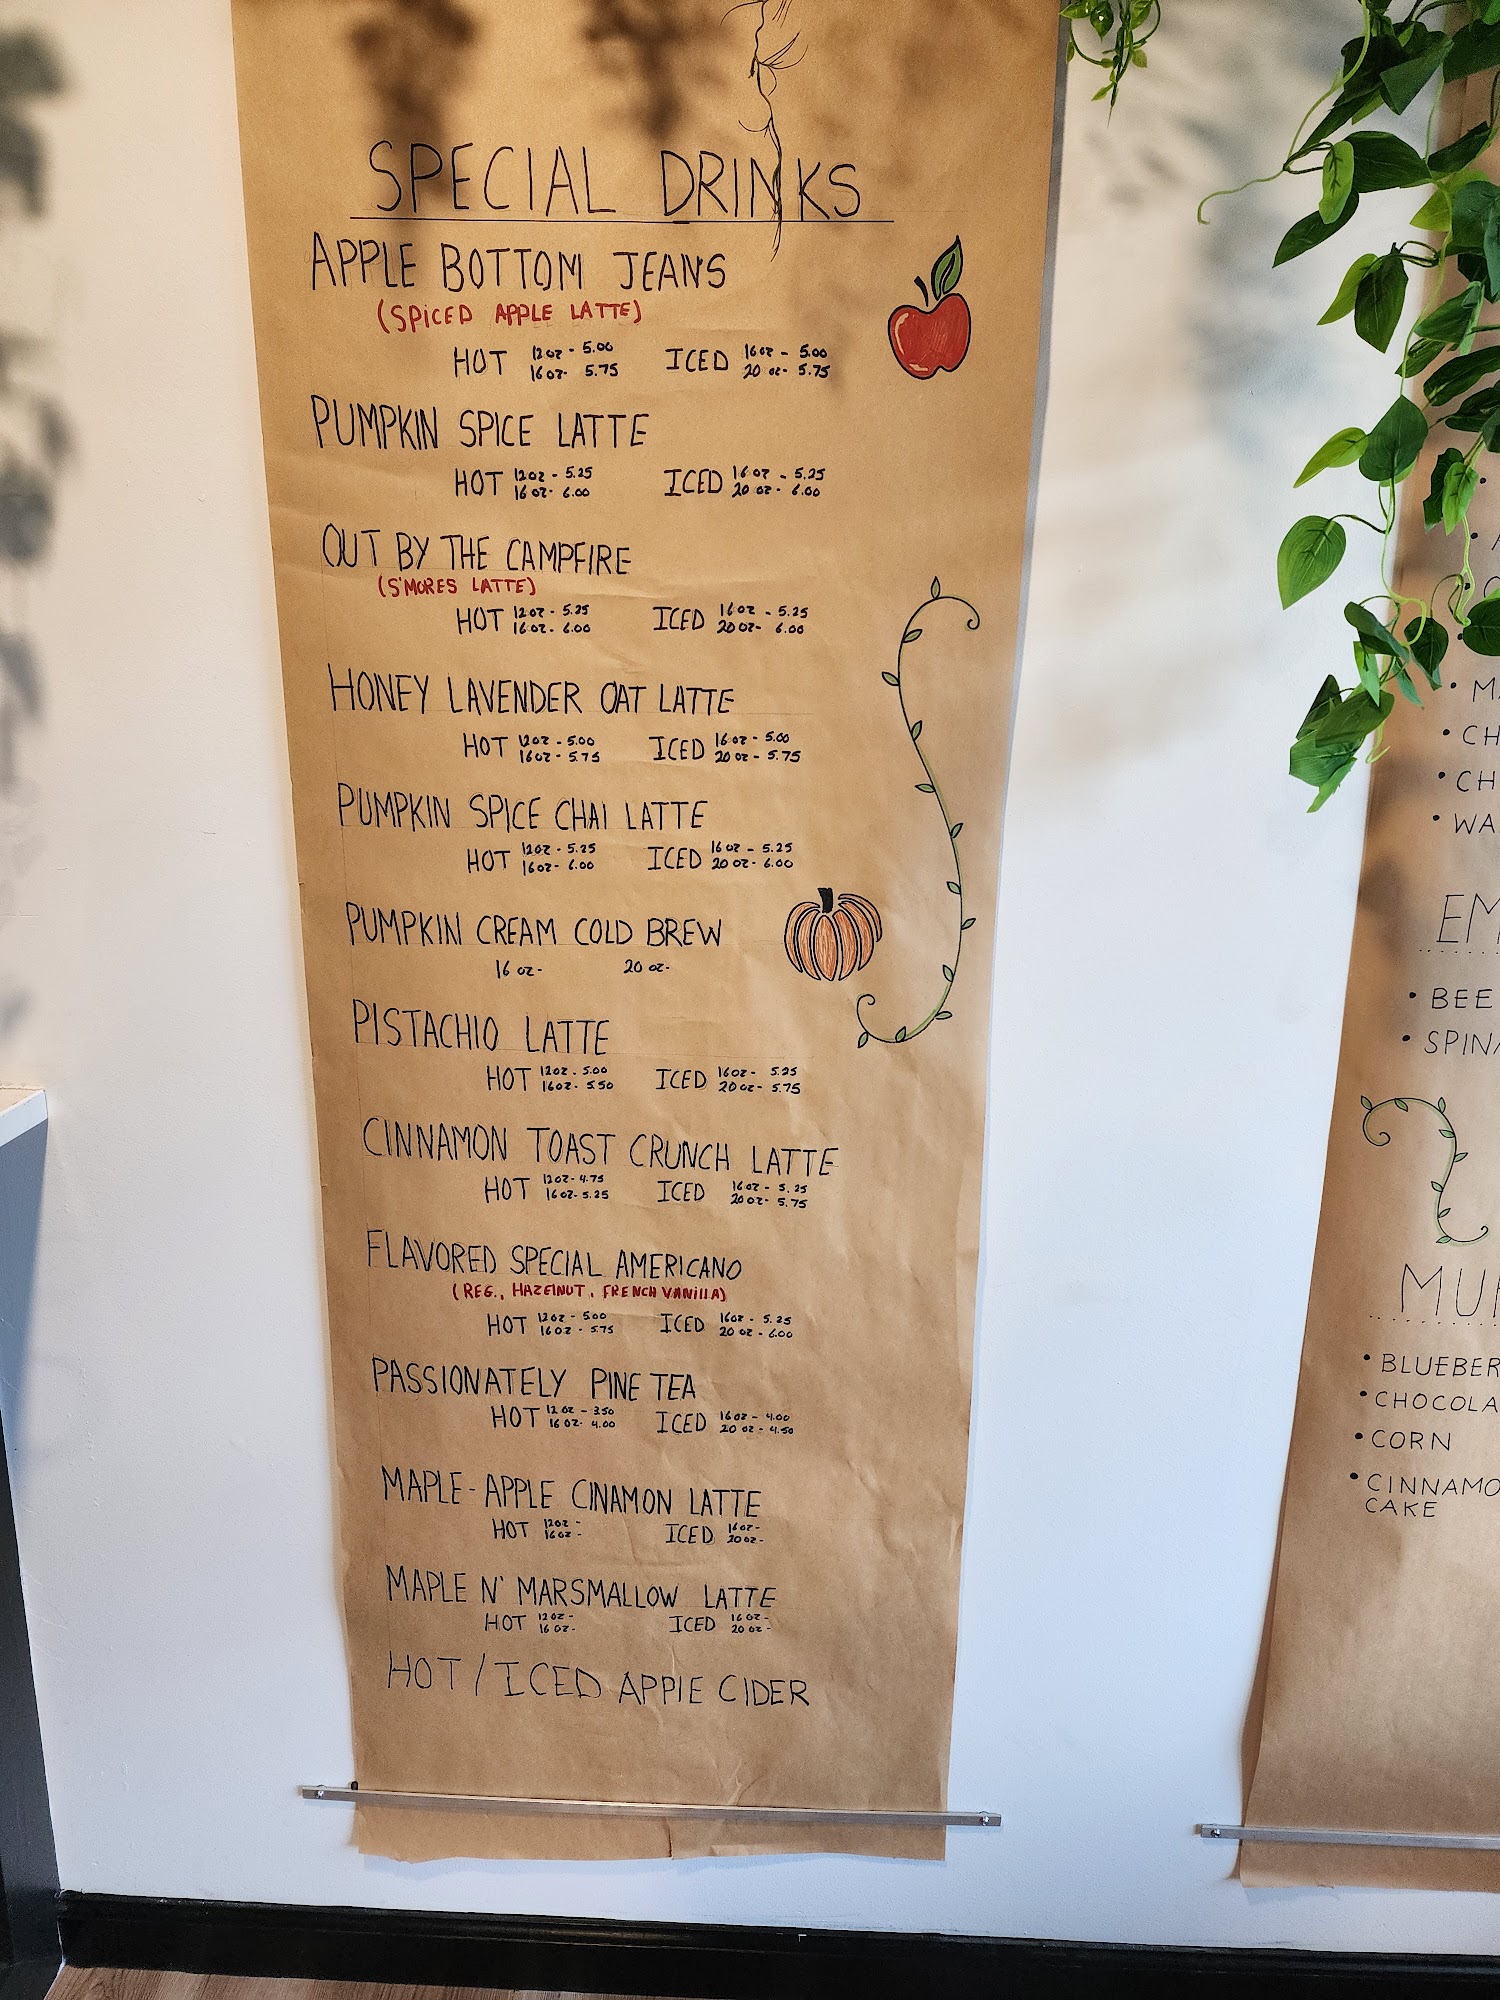 SPECIAL DRINKS
APPLE BOTTOM JEANS
(SPICED APPLE LATTE)
HOT 12oz - 5.00 ICED 16oz - 5.00
16oz- 5.75 20 oz- 5.75
PUMPKIN SPICE LATTE
HOT 12oz - 5.25 ICED 16oz - 5.25
16oz- 6.00 20 oz- 6.00
OUT BY THE CAMPFIRE
(S'MORES LATTE)
HOT 12oz - 5.25 ICED 16oz - 5.25
16oz. 6.00 20oz- 6.00
HONEY LAVENDER OAT LATTE
HOT 12oz - 5.00 ICED 16oz - 5.00
16oz - 5.75 20oz - 5.75
PUMPKIN SPICE CHAI LATTE
HOT 12oz - 5.25 ICED 16oz - 5.25
16oz- 6.00 20oz- 6.00
PUMPKIN CREAM COLD BREW
16 oz- 20 oz-
PISTACHIO LATTE
HOT 12oz - 5.00 ICED 16oz - 5.25
16oz- 5.50 20oz- 5.75
CINNAMON TOAST CRUNCH LATTE
HOT 12oz- 4.75 ICED 16oz - 5.25
16oz- 5.25 20oz- 5.75
FLAVORED SPECIAL AMERICANO
(REG., HAZElNUT, FRENCH VANillA)
HOT 12oz - 5.00 ICED 16oz - 5.25
16oz - 5.75 20 oz - 6.00
PASSIONATELY PINE TEA
HOT 12 oz - 3.50 ICED 16oz - 4.00
16 oz- 4.00 20 oz - 4.50
MAPLE-APPLE CINAMON LATTE
HOT 12oz - ICED 16oz-
16oz - 20oz-
MAPLE N' MARSMALLOW LATTE
HOT 12oz - ICED 16oz-
16oz- 20oz-
HOT/ICED APPlE CIDER
• MA
• CH
• CH
• WA
EM
• BEE
• SPINA
MUF
• BLUEBER
• CHOCOLA
• CORN
• CINNAMO
CAKE